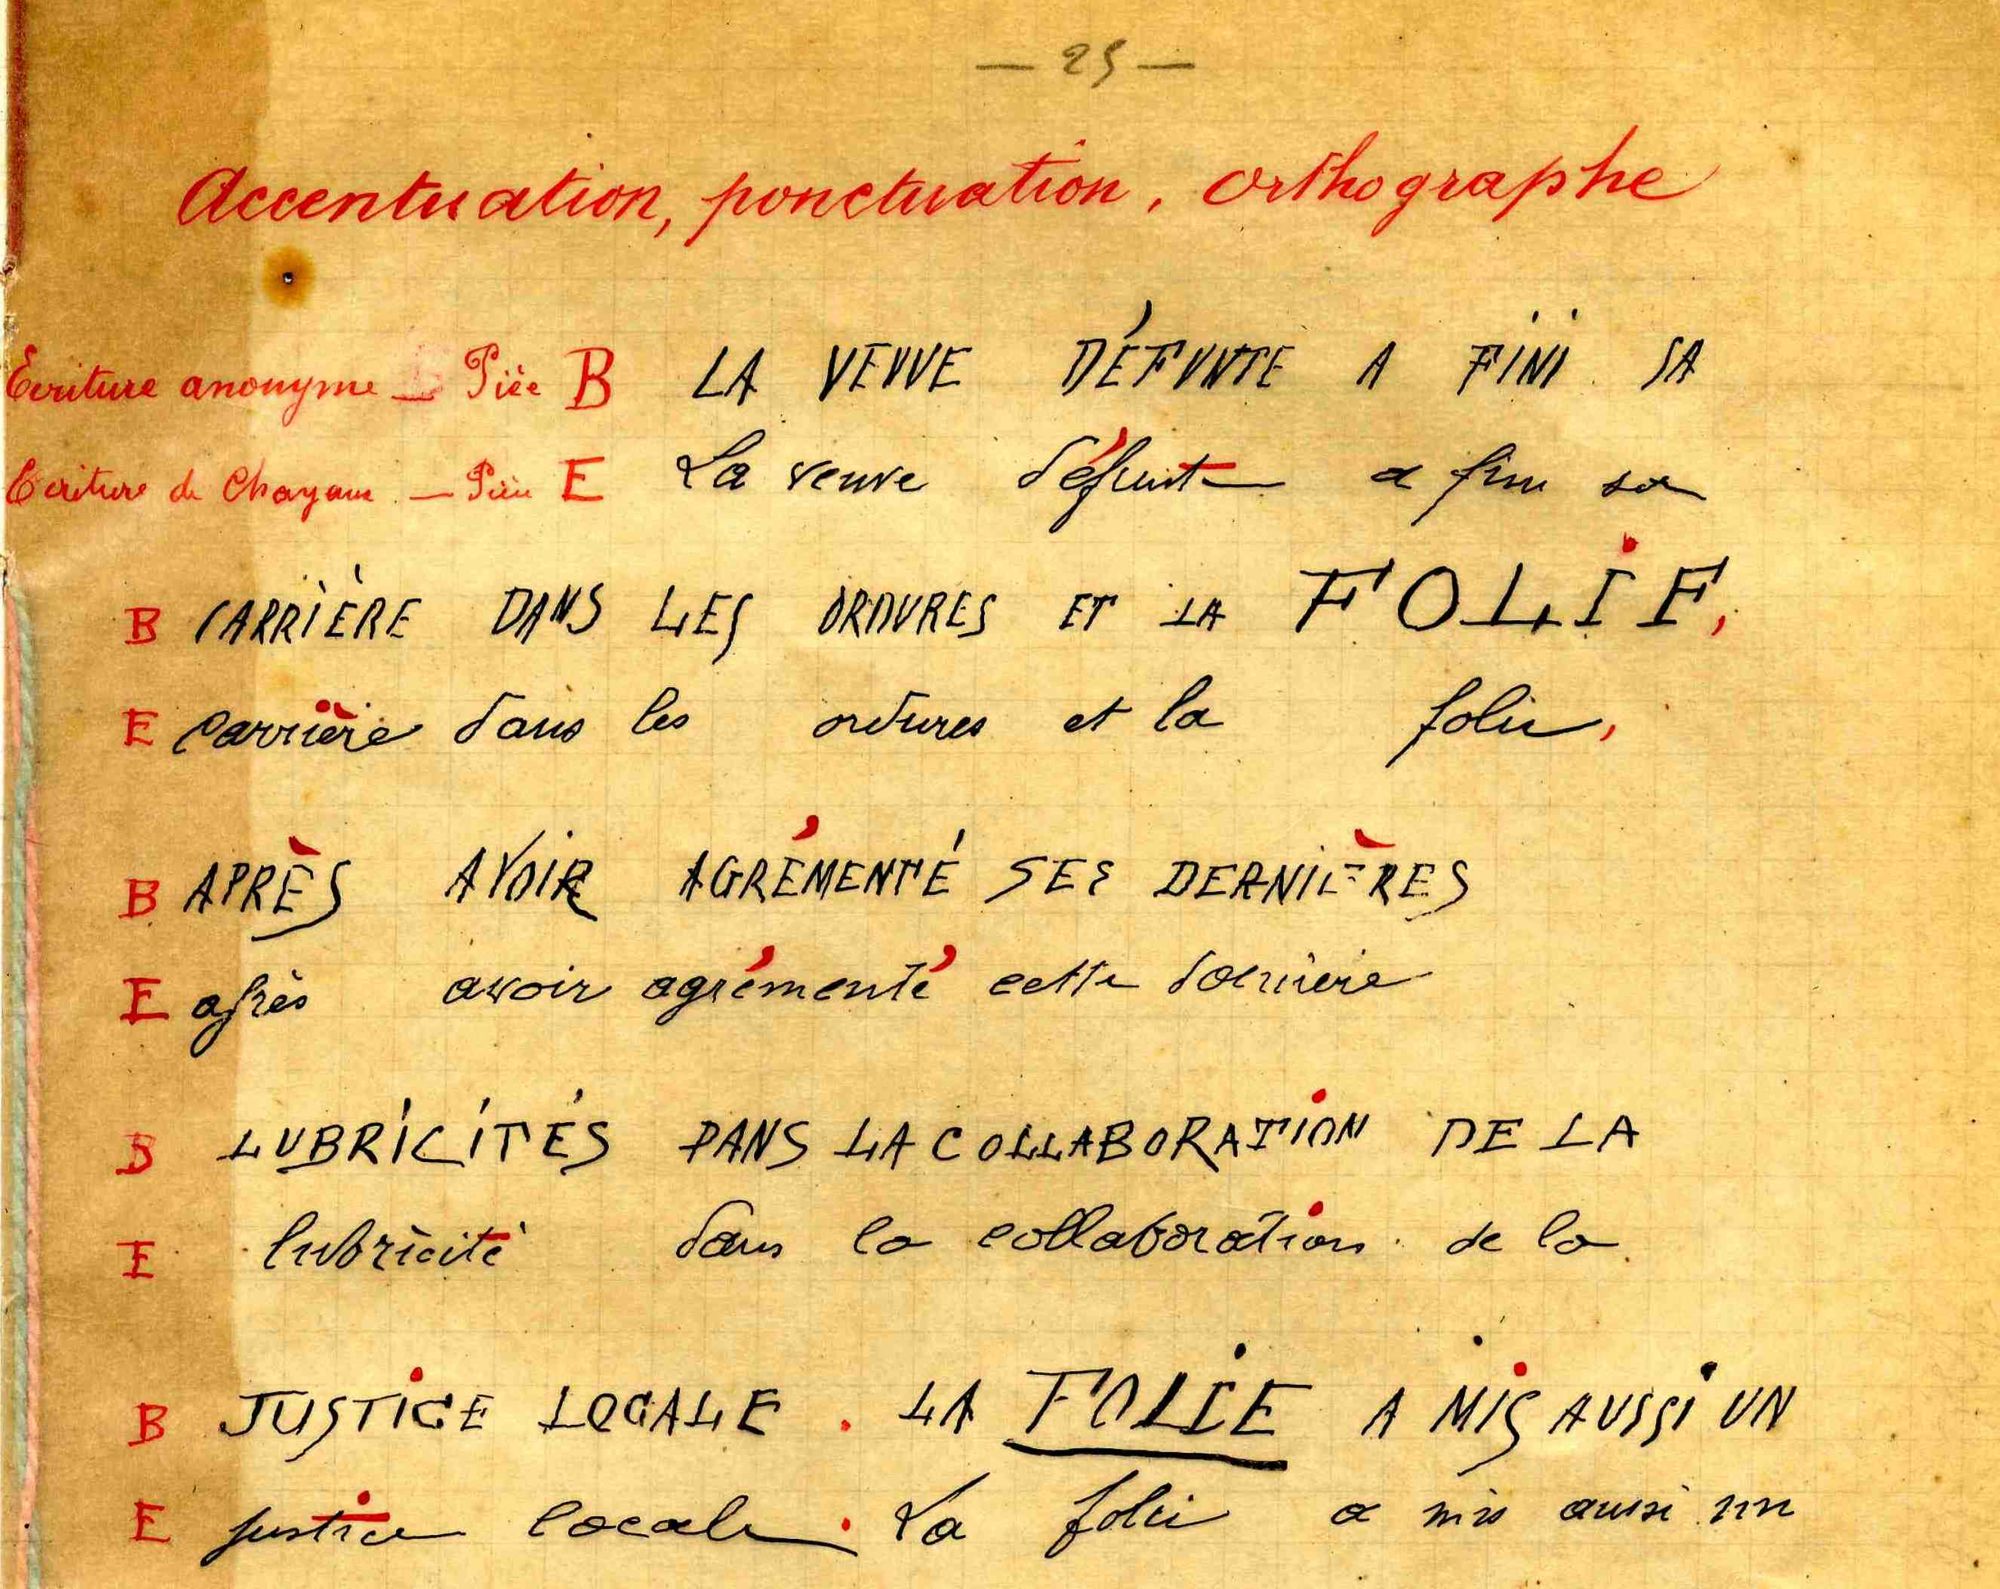 — 25 —
Accentuation, ponctuation, orthographe
Ecriture anonyme — Pièce B LA VEUVE DÉFUNTE A FINI SA
Ecriture de — Pièce E La veuve défunte a fini sa
B CARRIÈRE DANS LES ORDURES ET LA FOLIE,
E carrière dans les ordures et la folie,
B APRÈS AVOIR AGRÉMENTÉ SES DERNIÈRES
E après avoir agrémenté cette dernière
B LUBRICITÉS DANS LA COLLABORATION DE LA
E lubricité dans la collaboration de la
B JUSTICE LOCALE. LA FOLIE A MIS AUSSI UN
E justice locale. La folie a mis aussi un